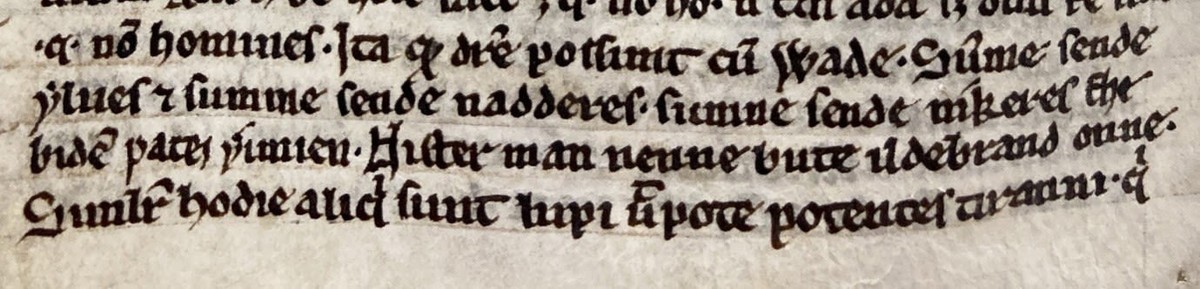 .q. nō homines. Ita qđ dr̄e possunt cū Wade. Sūme sende
ylues ⁊ summe sende nadderes. sumne sende nikeres the
bidē pateȝ ƿimien. Nister man nenne bute ildebrand onne.
Similr̄ hodie aliqͥ sunt lupi ut̄pote potentes tiranni. qͥ